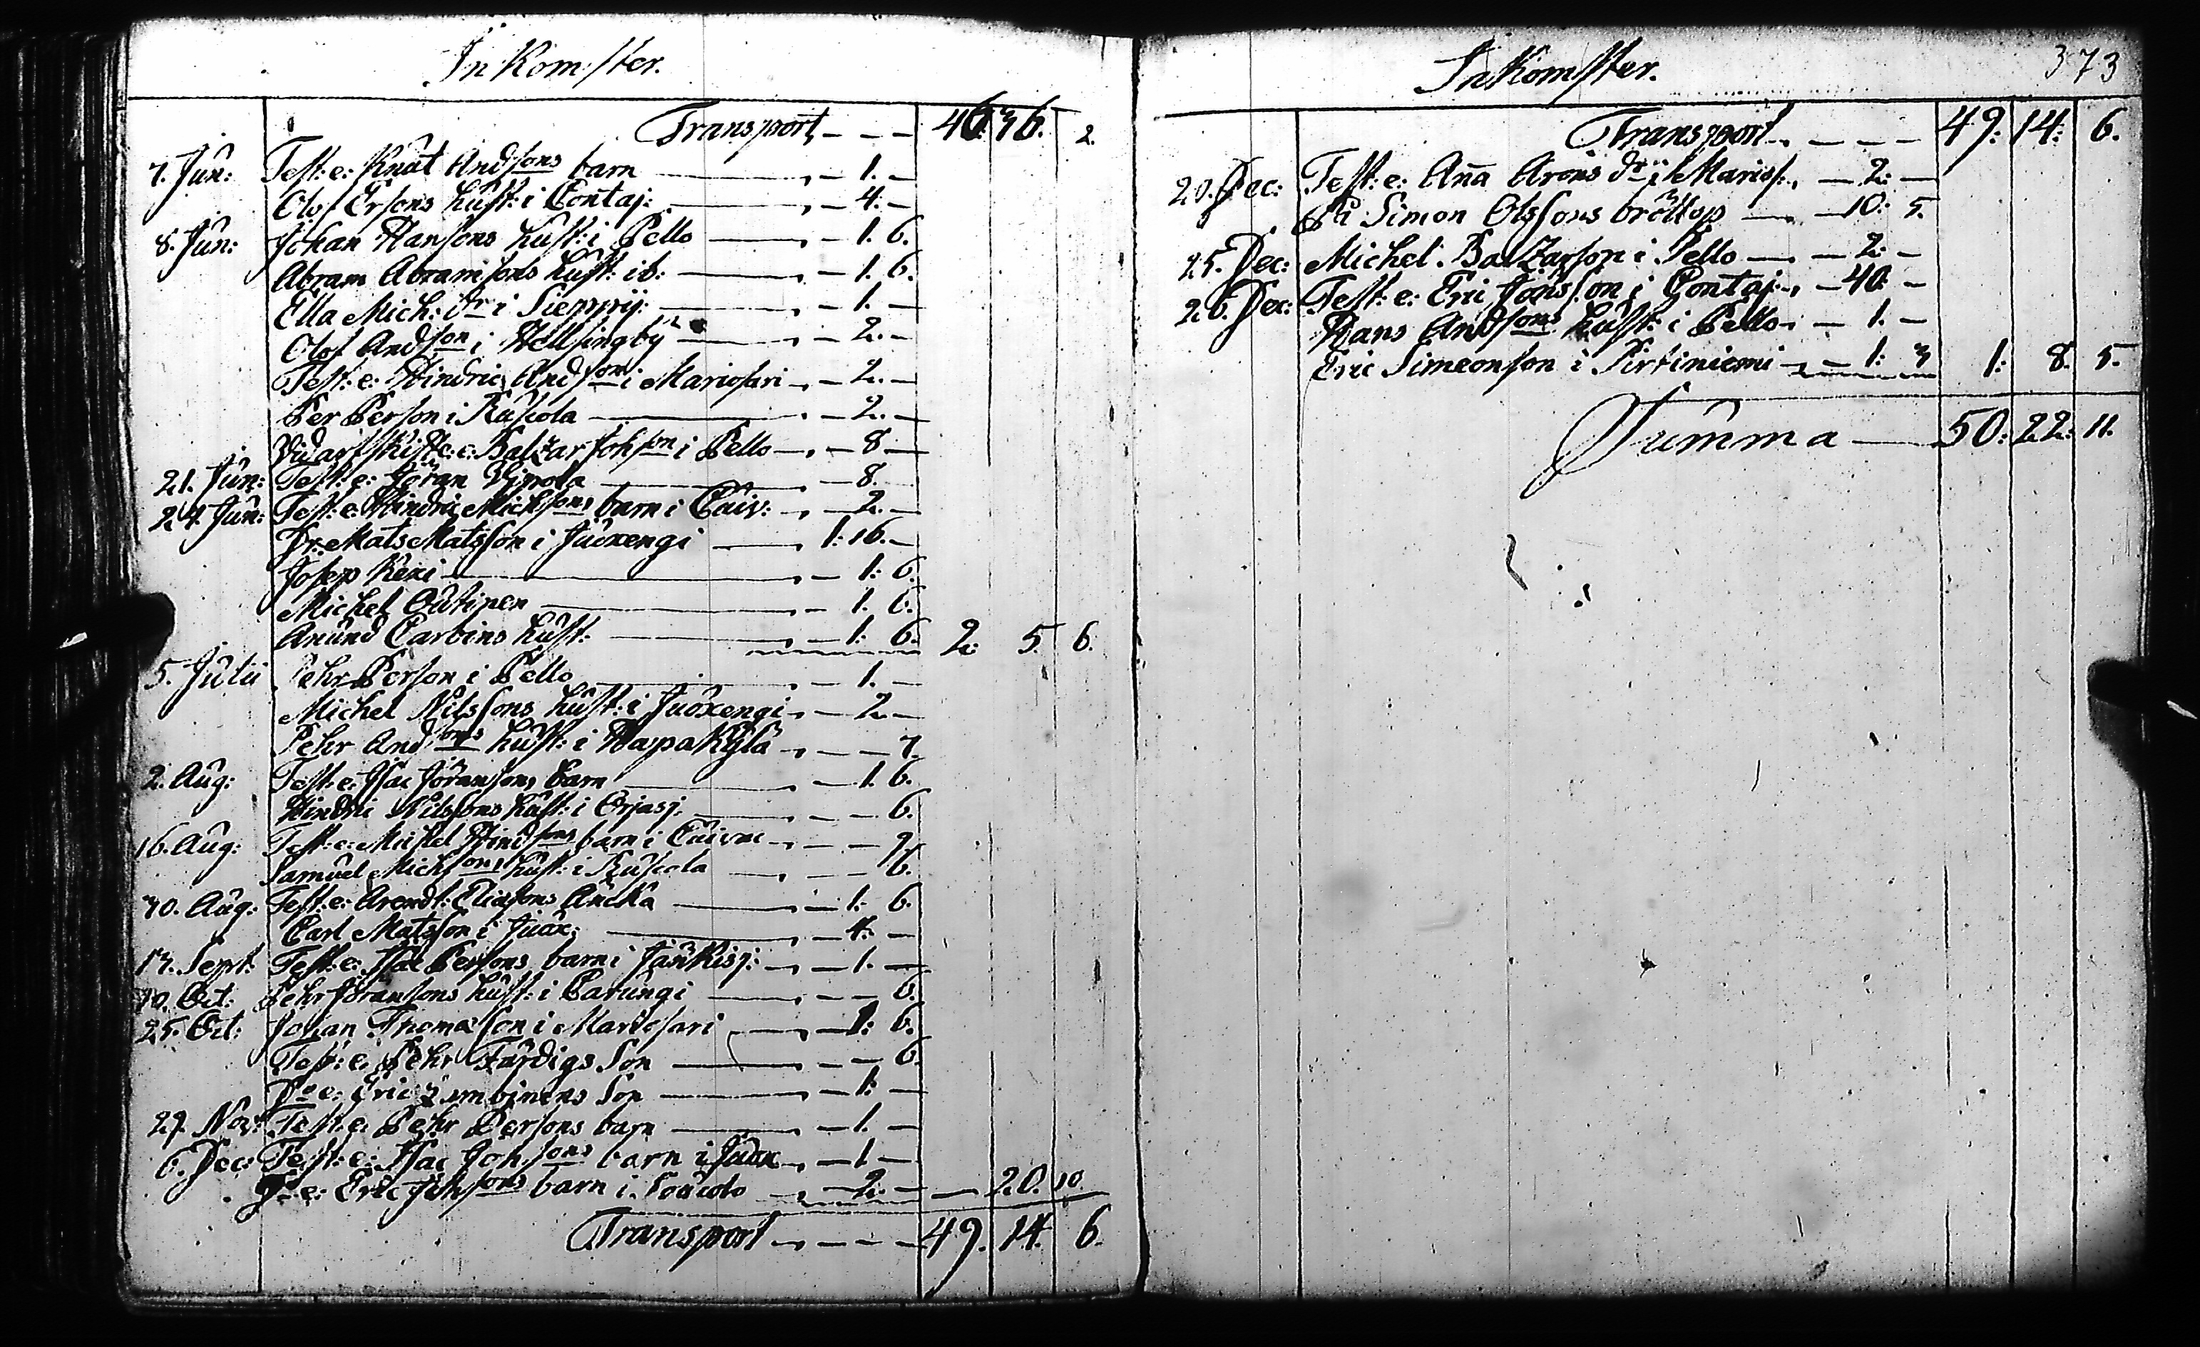 Inkomster.
Transport, - - - 46. 36. 2.
7. Jun: Test: e: Knut Andsons barn - 1. -
Olof Ersons hust: i Contaj: - 4: -
8. Jun: Johan Hansons hust: i Pello - 1. 6.
Abram Abramsons hust: ib: - 1. 6.
Ella Mich: dr i Sieppij: - 1. -
Olof Andson i Hellsingby - 2. -
Test: e: Hindric Andson i Mariosari - 2. -
Per Person i Ruscola - 2. -
Test: e: Balzar Johson i Pello - 8 -
21. Jun: Test: e: Jöran - 8.
24. Jun: Test: e: Hindric Michsons barn i Caiv: - 2. -
Dr: Mats Matsson i Juoxengi - 1: 16. -
Josep Kexi - 1: 6.
Michel Outinen - 1. 6.
Anund Carbins hust: - 1: 6. 2: 5. 6.
5. Julii Pehr Person i Pello - 1. -
Michel Nilssons hust: i Juoxengi - 2 -
Pehr Andsons hust: i Hapakylä - - 7.
2. Aug: Test: e: Isac Joransons barn - 1. 6.
Hindric Nilssons hust: i Orjasj: - 6.
16. Aug: Test: e: Michel Hindsons barn i Caivac - -
Samuel Michsons hust: i Ruscola - - 6.
30. Aug: Test: e: Arendt: Eliasons Ancka - 1: 6.
Carl Matsson i Juax: - 4: -
13. Sept: Test: e: Isac Persons barn i Jaukisj: - 1. -
10. Oct: Pehr Joransons hust: i Carungi - - 6.
25. Oct: Johan Thomasson i Mariosari - 1: 6.
Test: e: Pehr Furdigs Son - - 6.
Do e: Eric Son - 1: -
27. Nov: Test: e: Pehr Persons barn - 1. -
6. Dec: Test: e: Isac Johsons barn i Juax - 1 -
Dr e: Eric Johsons barn i - 2. - - 20. 10.
Transport - - - - 49. 14. 6.
Inkomster. 373
Transport - - - - 49: 14: 6.
20. Dec: Test: e: Aña Arons dr i Marios: - 2: -
På Simon Olssons bröllop - 10: 5.
25. Dec: Michel Baltzarson i Pello - 2: -
26. Dec: Test: e: Eric Jonsson i Contaj: - 40. -
Hans Andsons hust: i Pello - 1. -
Eric Simeonson i Pirtiniemi - 1: 3 1: 8. 5.
Summa - 50: 22: 11.